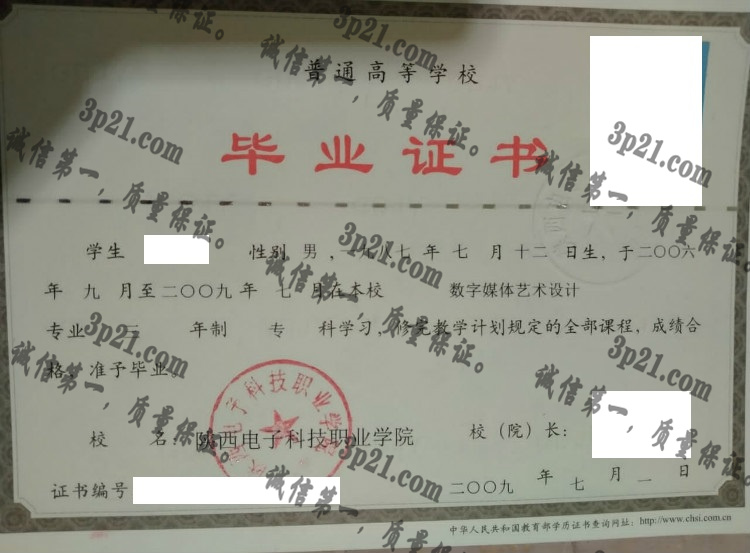 普通高等学校
毕业证书
学生 性别 男 , 一九八七 年 七 月 十二 日生, 于二〇〇六
年 九 月至二〇〇九年 七 月在本校 数字媒体艺术设计
专业 三 年制 专 科学习, 修完教学计划规定的全部课程, 成绩合
格, 准予毕业。
校 名: 陕西电子科技职业学院 校(院)长:
证书编号 二〇〇九 年 七 月 一 日
中华人民共和国教育部学历证书查询网址: http://www.chsi.com.cn
3p21.com
诚信第一,质量保证。
3p21.com
诚信第一,质量保证。
3p21.com
诚信第一,质量保证。
3p21.com
诚信第一,质量保证。
3p21.com
诚信第一,质量保证。
3p21.com
诚信第一,质量保证。
3p21.com
诚信第一,质量保证。